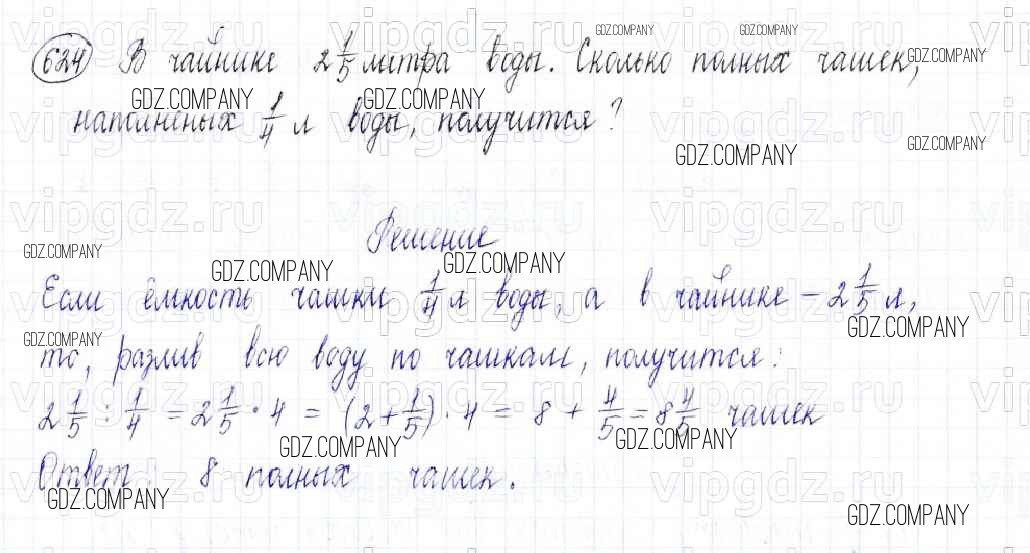 624 В чайнике 2 1/5 литра воды. Сколько полных чашек,
наполненых 1/4 л воды, получится?
Решение
Если ёмкость чашки 1/4 л воды, а в чайнике – 2 1/5 л,
то, разлив всю воду по чашкам, получится:
2 1/5 : 1/4 = 2 1/5 · 4 = (2 + 1/5) · 4 = 8 + 4/5 = 8 4/5 чашек
Ответ: 8 полных чашек.
vipgdz.ru
GDZ.COMPANY